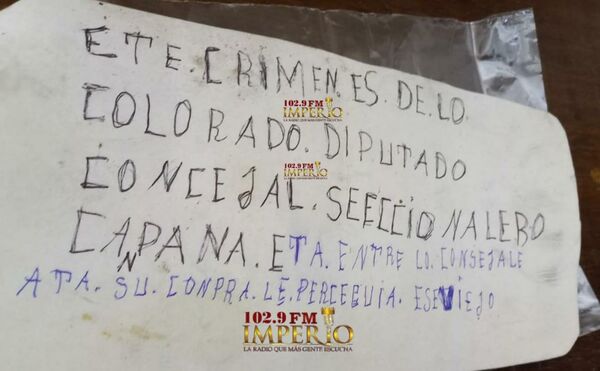 ETE.CRIMEN.ES.DE.LO.
102.9 FM
IMPERIO
LA RADIO QUE MÁS GENTE ESCUCHA
COLORADO.DIPUTADO
102.9 FM
IMPERIO
LA RADIO QUE MÁS GENTE ESCUCHA
CONCEJAL.SEECCIONALERO
CANPAÑA.ETA.ENTRE LO.CONSEJALE
ATA.SU.CONPRA.LE.PERCEGUIA.ESEVIEJO
102.9 FM
IMPERIO
LA RADIO QUE MÁS GENTE ESCUCHA